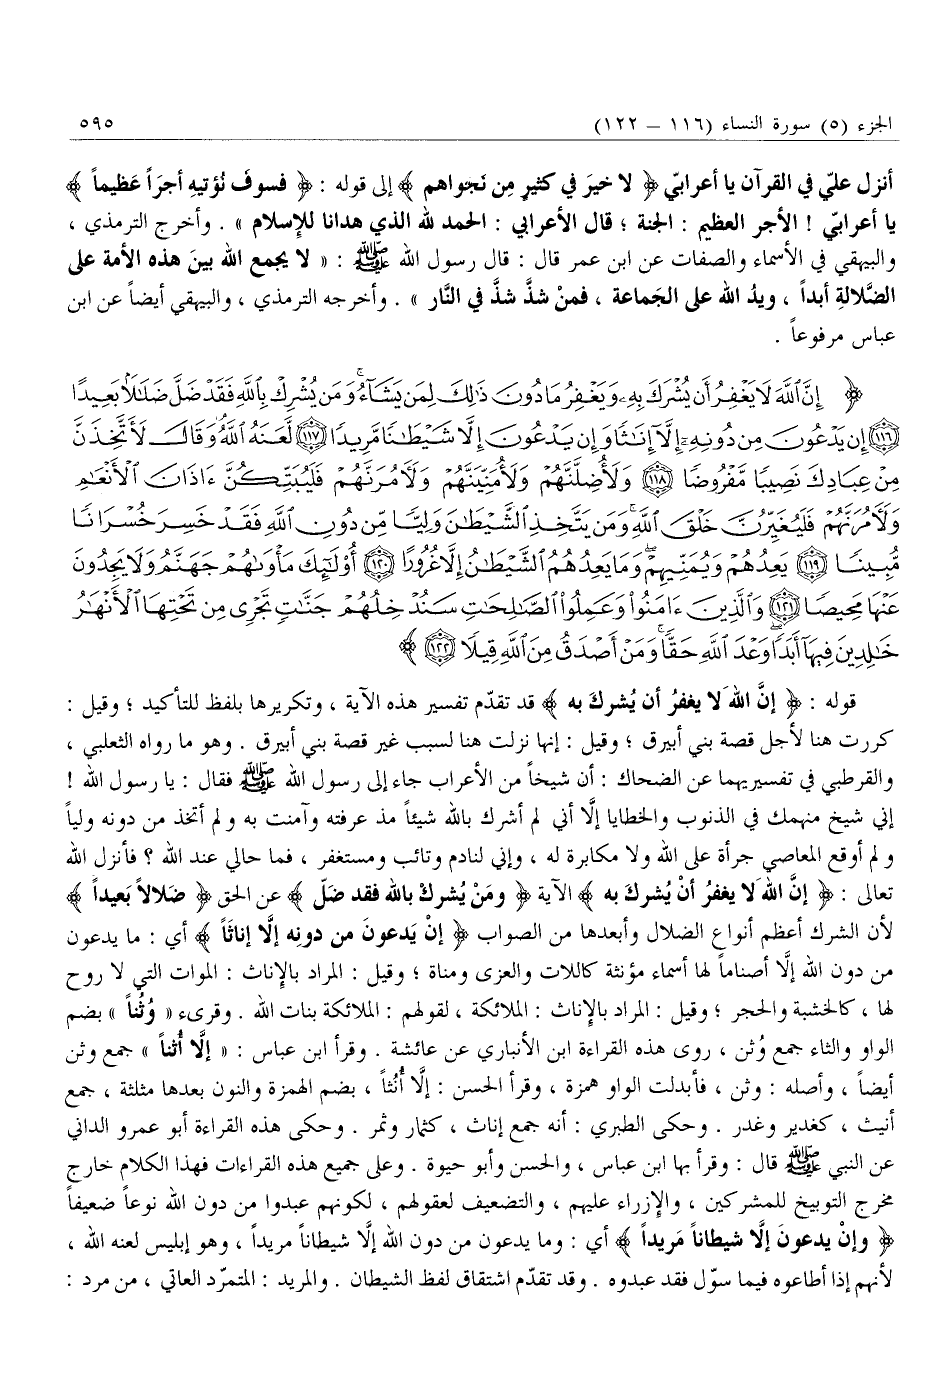 الجزء (٥) سورة النساء (١١٦ – ١٢٢) ٥٩٥
أنزل عليّ في القرآن يا أعرابيّ ﴿ لا خيرَ في كثيرٍ مِن نَجواهم ﴾ إلى قوله : ﴿ فسوفَ نُؤتيهِ أجرَاً عَظيماً ﴾
يا أعرابيّ ! الأجر العظيم : الجنة ؛ قال الأعرابي : الحمد لله الذي هدانا للإسلام » . وأخرج الترمذي ،
والبيهقي في الأسماء والصفات عن ابن عمر قال : قال رسول الله ﷺ : « لا يجمع الله بينَ هذه الأمة على
الضَّلالةِ أبداً ، ويدُ الله على الجَماعة ، فمنْ شذَّ شذَّ في النَّار » . وأخرجه الترمذي ، والبيهقي أيضاً عن ابن
عباس مرفوعاً .
﴿ إِنَّ ٱللَّهَ لَا يَغْفِرُ أَن يُشْرَكَ بِهِۦ وَيَغْفِرُ مَا دُونَ ذَٰلِكَ لِمَن يَشَآءُ ۚ وَمَن يُشْرِكْ بِٱللَّهِ فَقَدْ ضَلَّ ضَلَٰلًۢا بَعِيدًا
﴿١١٦﴾ إِن يَدْعُونَ مِن دُونِهِۦٓ إِلَّآ إِنَٰثًا وَإِن يَدْعُونَ إِلَّا شَيْطَٰنًا مَّرِيدًا ﴿١١٧﴾ لَّعَنَهُ ٱللَّهُ ۘ وَقَالَ لَأَتَّخِذَنَّ
مِنْ عِبَادِكَ نَصِيبًا مَّفْرُوضًا ﴿١١٨﴾ وَلَأُضِلَّنَّهُمْ وَلَأُمَنِّيَنَّهُمْ وَلَءَامُرَنَّهُمْ فَلَيُبَتِّكُنَّ ءَاذَانَ ٱلْأَنْعَٰمِ
وَلَءَامُرَنَّهُمْ فَلَيُغَيِّرُنَّ خَلْقَ ٱللَّهِ ۚ وَمَن يَتَّخِذِ ٱلشَّيْطَٰنَ وَلِيًّا مِّن دُونِ ٱللَّهِ فَقَدْ خَسِرَ خُسْرَانًا
مُّبِينًا ﴿١١٩﴾ يَعِدُهُمْ وَيُمَنِّيهِمْ ۖ وَمَا يَعِدُهُمُ ٱلشَّيْطَٰنُ إِلَّا غُرُورًا ﴿١٢٠﴾ أُو۟لَٰٓئِكَ مَأْوَىٰهُمْ جَهَنَّمُ وَلَا يَجِدُونَ
عَنْهَا مَحِيصًا ﴿١٢١﴾ وَٱلَّذِينَ ءَامَنُوا۟ وَعَمِلُوا۟ ٱلصَّٰلِحَٰتِ سَنُدْخِلُهُمْ جَنَّٰتٍ تَجْرِى مِن تَحْتِهَا ٱلْأَنْهَٰرُ
خَٰلِدِينَ فِيهَآ أَبَدًا ۖ وَعْدَ ٱللَّهِ حَقًّا ۚ وَمَنْ أَصْدَقُ مِنَ ٱللَّهِ قِيلًا ﴿١٢٢﴾ ﴾
قوله : ﴿ إنَّ اللهَ لا يغفرُ أن يُشركَ به ﴾ قد تقدّم تفسير هذه الآية ، وتكريرها بلفظ للتأكيد ؛ وقيل :
كررت هنا لأجل قصة بني أبيرق ؛ وقيل : إنها نزلت هنا لسبب غير قصة بني أبيرق . وهو ما رواه الثعلبي ،
والقرطبي في تفسيريهما عن الضحاك : أن شيخاً من الأعراب جاء إلى رسول الله ﷺ فقال : يا رسول الله !
إني شيخ منهمك في الذنوب والخطايا إلَّا أني لم أشرك بالله شيئاً مذ عرفته وآمنت به ولم أتخذ من دونه ولياً
ولم أوقع المعاصي جرأة على الله ولا مكابرة له ، وإني لنادم وتائب ومستغفر ، فما حالي عند الله ؟ فأنزل الله
تعالى : ﴿ إنَّ الله لا يغفرُ أنْ يُشركَ به ﴾ الآية ﴿ ومَنْ يُشركْ بالله فقد ضلّ ﴾ عن الحق ﴿ ضلالاً بَعيداً ﴾
لأن الشرك أعظم أنواع الضلال وأبعدها من الصواب ﴿ إنْ يَدعونَ من دونِه إلَّا إناثَاً ﴾ أي : ما يدعون
من دون الله إلَّا أصناماً لها أسماء مؤنثة كاللات والعزى ومناة ؛ وقيل : المراد بالإناث : الموات التي لا روح
لها ، كالخشبة والحجر ؛ وقيل : المراد بالإناث : الملائكة ، لقولهم : الملائكة بنات الله . وقرىء « وُثُناً » بضم
الواو والثاء جمع وُثن ، روى هذه القراءة ابن الأنباري عن عائشة . وقرأ ابن عباس : « إلَّا أُثناً » جمع وثن
أيضاً ، وأصله : وثن ، فأبدلت الواو همزة ، وقرأ الحسن : إلَّا أُنُثاً ، بضم الهمزة والنون بعدها مثلثة ، جمع
أنيث ، كغدير وغدر . وحكى الطبري : أنه جمع إناث ، كثمار وثمر . وحكى هذه القراءة أبو عمرو الداني
عن النبي ﷺ قال : وقرأ بها ابن عباس ، والحسن وأبو حيوة . وعلى جميع هذه القراءات فهذا الكلام خارج
مخرج التوبيخ للمشركين ، والإزراء عليهم ، والتضعيف لعقولهم ، لكونهم عبدوا من دون الله نوعاً ضعيفاً
﴿ وإنْ يدعونَ إلَّا شيطاناً مَريداً ﴾ أي : وما يدعون من دون الله إلَّا شيطاناً مريداً ، وهو إبليس لعنه الله ،
لأنهم إذا أطاعوه فيما سوّل فقد عبدوه . وقد تقدّم اشتقاق لفظ الشيطان . والمريد : المتمرّد العاتي ، من مرد :